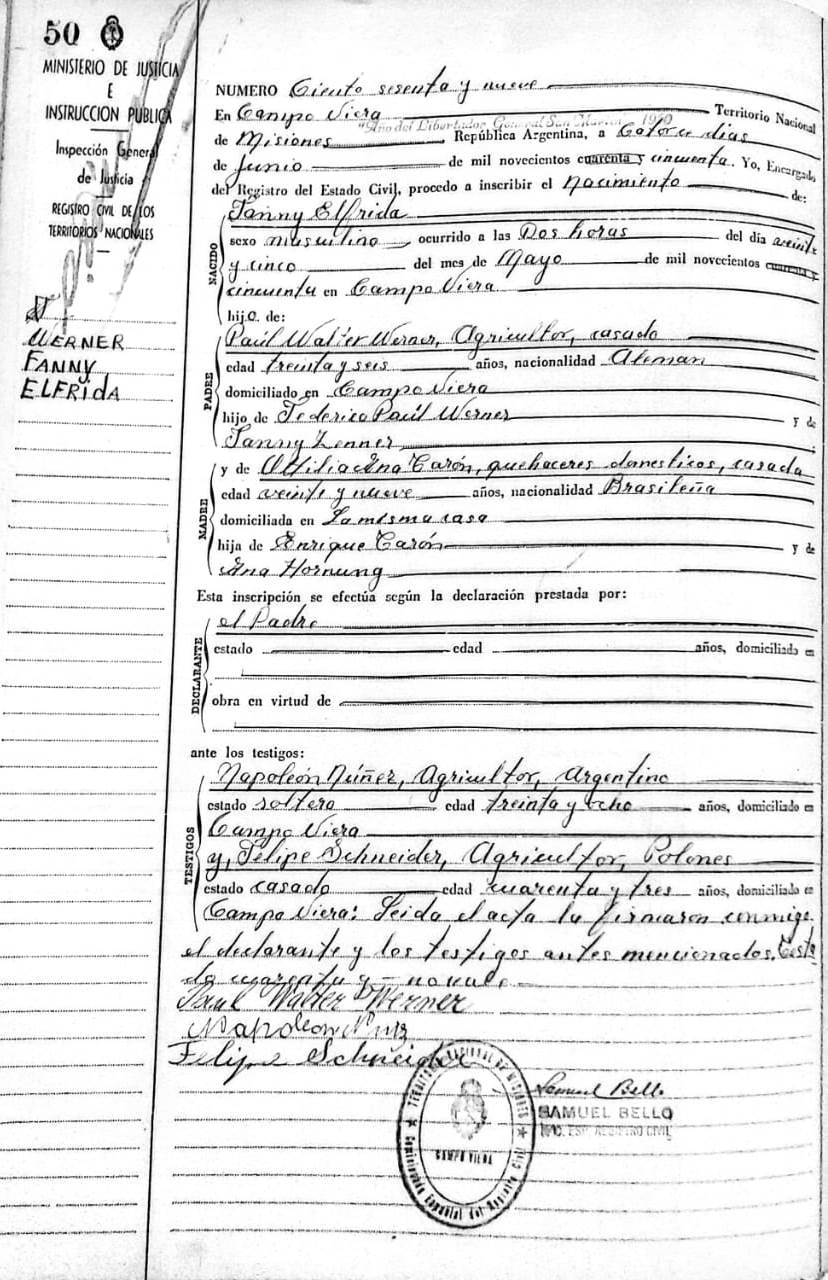 50
MINISTERIO DE JUSTICIA
E
INSTRUCCION PUBLICA
Inspección General
de Justicia
REGISTRO CIVIL DE LOS
TERRITORIOS NACIONALES
WERNER
FANNY
ELFRIDA
NUMERO Ciento sesenta y nueve
En Campo Viera Territorio Nacional
"Año del Libertador General San Martín" 1950
de Misiones República Argentina, a Catorce días
de Junio de mil novecientos cuarenta y cincuenta. Yo, Encargado
del Registro del Estado Civil, procedo a inscribir el Nacimiento de:
NACIDO
Fanny Elfrida
sexo masculino, ocurrido a las Dos horas del día veinte
y cinco del mes de Mayo de mil novecientos cuarenta y
cincuenta en Campo Viera
hijo de:
PADRE
Paúl Walter Werner, Agricultor, casado
edad treinta y seis años, nacionalidad Aleman
domiciliado en Campo Viera
hijo de Federico Paúl Werner y de
Fanny Zenner
MADRE
y de Ottilia Ana Carón, quehaceres domesticos, casada
edad veinte y nueve años, nacionalidad Brasileña
domiciliada en La misma casa
hija de Enrique Carón y de
Ana Hornung
Esta inscripción se efectúa según la declaración prestada por:
DECLARANTE
el Padre
estado edad años, domiciliado en
obra en virtud de
ante los testigos:
TESTIGOS
Napoleón Núñez, Agricultor, Argentino
estado soltero edad treinta y ocho años, domiciliado en
Campo Viera
y, Felipe Schneider, Agricultor, Polones
estado casado edad cuarenta y tres años, domiciliado en
Campo Viera: Leida el acta la firmaron conmigo
el declarante y los testigos antes mencionados. Testa
do cuarenta y - no vale
Paul Walter Werner
Napoleon
Felipe Schneider
TERRITORIO NACIONAL DE MISIONES
CAMPO VIERA
del Registro Civil
Samuel Bello
SAMUEL BELLO
ENC. ESP. REGISTRO CIVIL